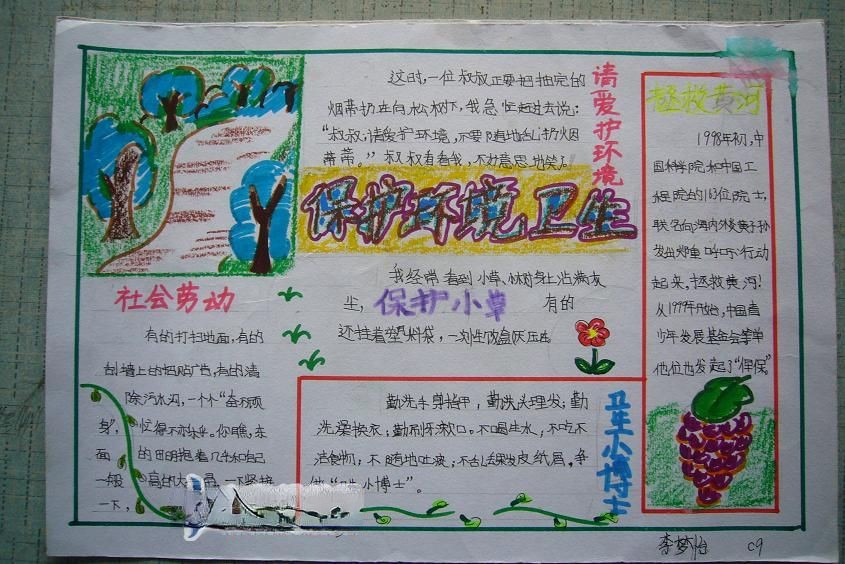 这时,一位叔叔正要把抽完的
烟蒂扔在向松树下,我急忙赶过去说:
"叔叔,请爱护环境,不要随地乱扔烟
蒂蒂。"叔叔看看我,不好意思地笑了
请爱护环境
保护环境卫生
拯救黄河
1998年初,中
国科学院和中国工
程院的163位院士,
联名向海内外炎黄子孙
发出郑重呼吁:行动
起来,拯救黄河!
从1999年开始,中国青
少年发展基金会等单
他位也发起了"保
社会劳动
有的打扫地面,有的
刮墙上的 广告,有的清
除污水沟,一个个"奋不顾
身",忙得不亦乐乎。你瞧,东
面的田明抱着几乎和自己
一般高的大 ,一下紧接
一下,
我经常看到小草、树身上沾满灰
尘,保护小草 有的
还挂着塑料袋,一次性饭盒灰压在
勤洗手剪指甲,勤洗头理发;勤
洗澡换衣,勤刷牙漱口。不喝生水,不吃不
洁食物;不随地吐痰,不乱丢果皮纸屑,争
做" 小博士"。
卫生小博士
李梦怡 C9